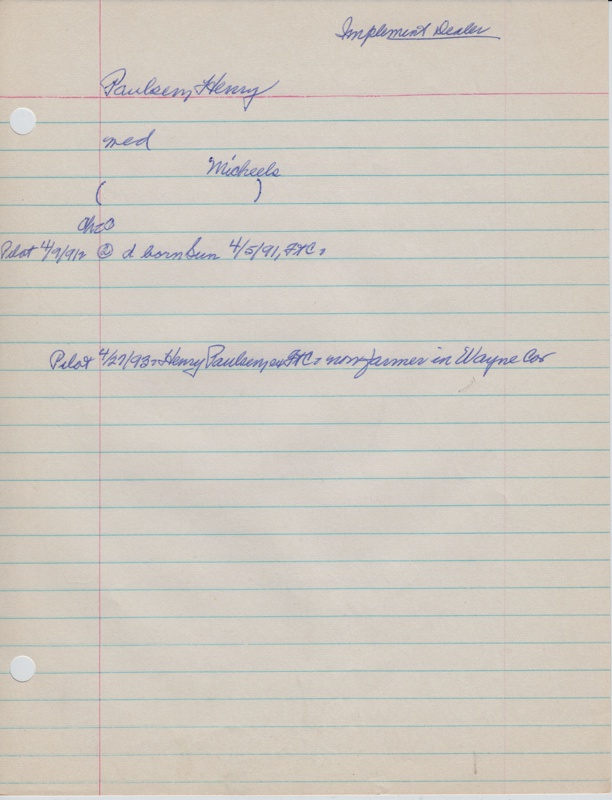 Implement Dealer
Paulsen, Henry
med
Micheels
( )
Ch
Pilot 4/9/91, d born Sun 4/5/91, FtC.
Pilot 4/27/93. Henry Paulsen, ex FtC. now farmer in Wayne Co.